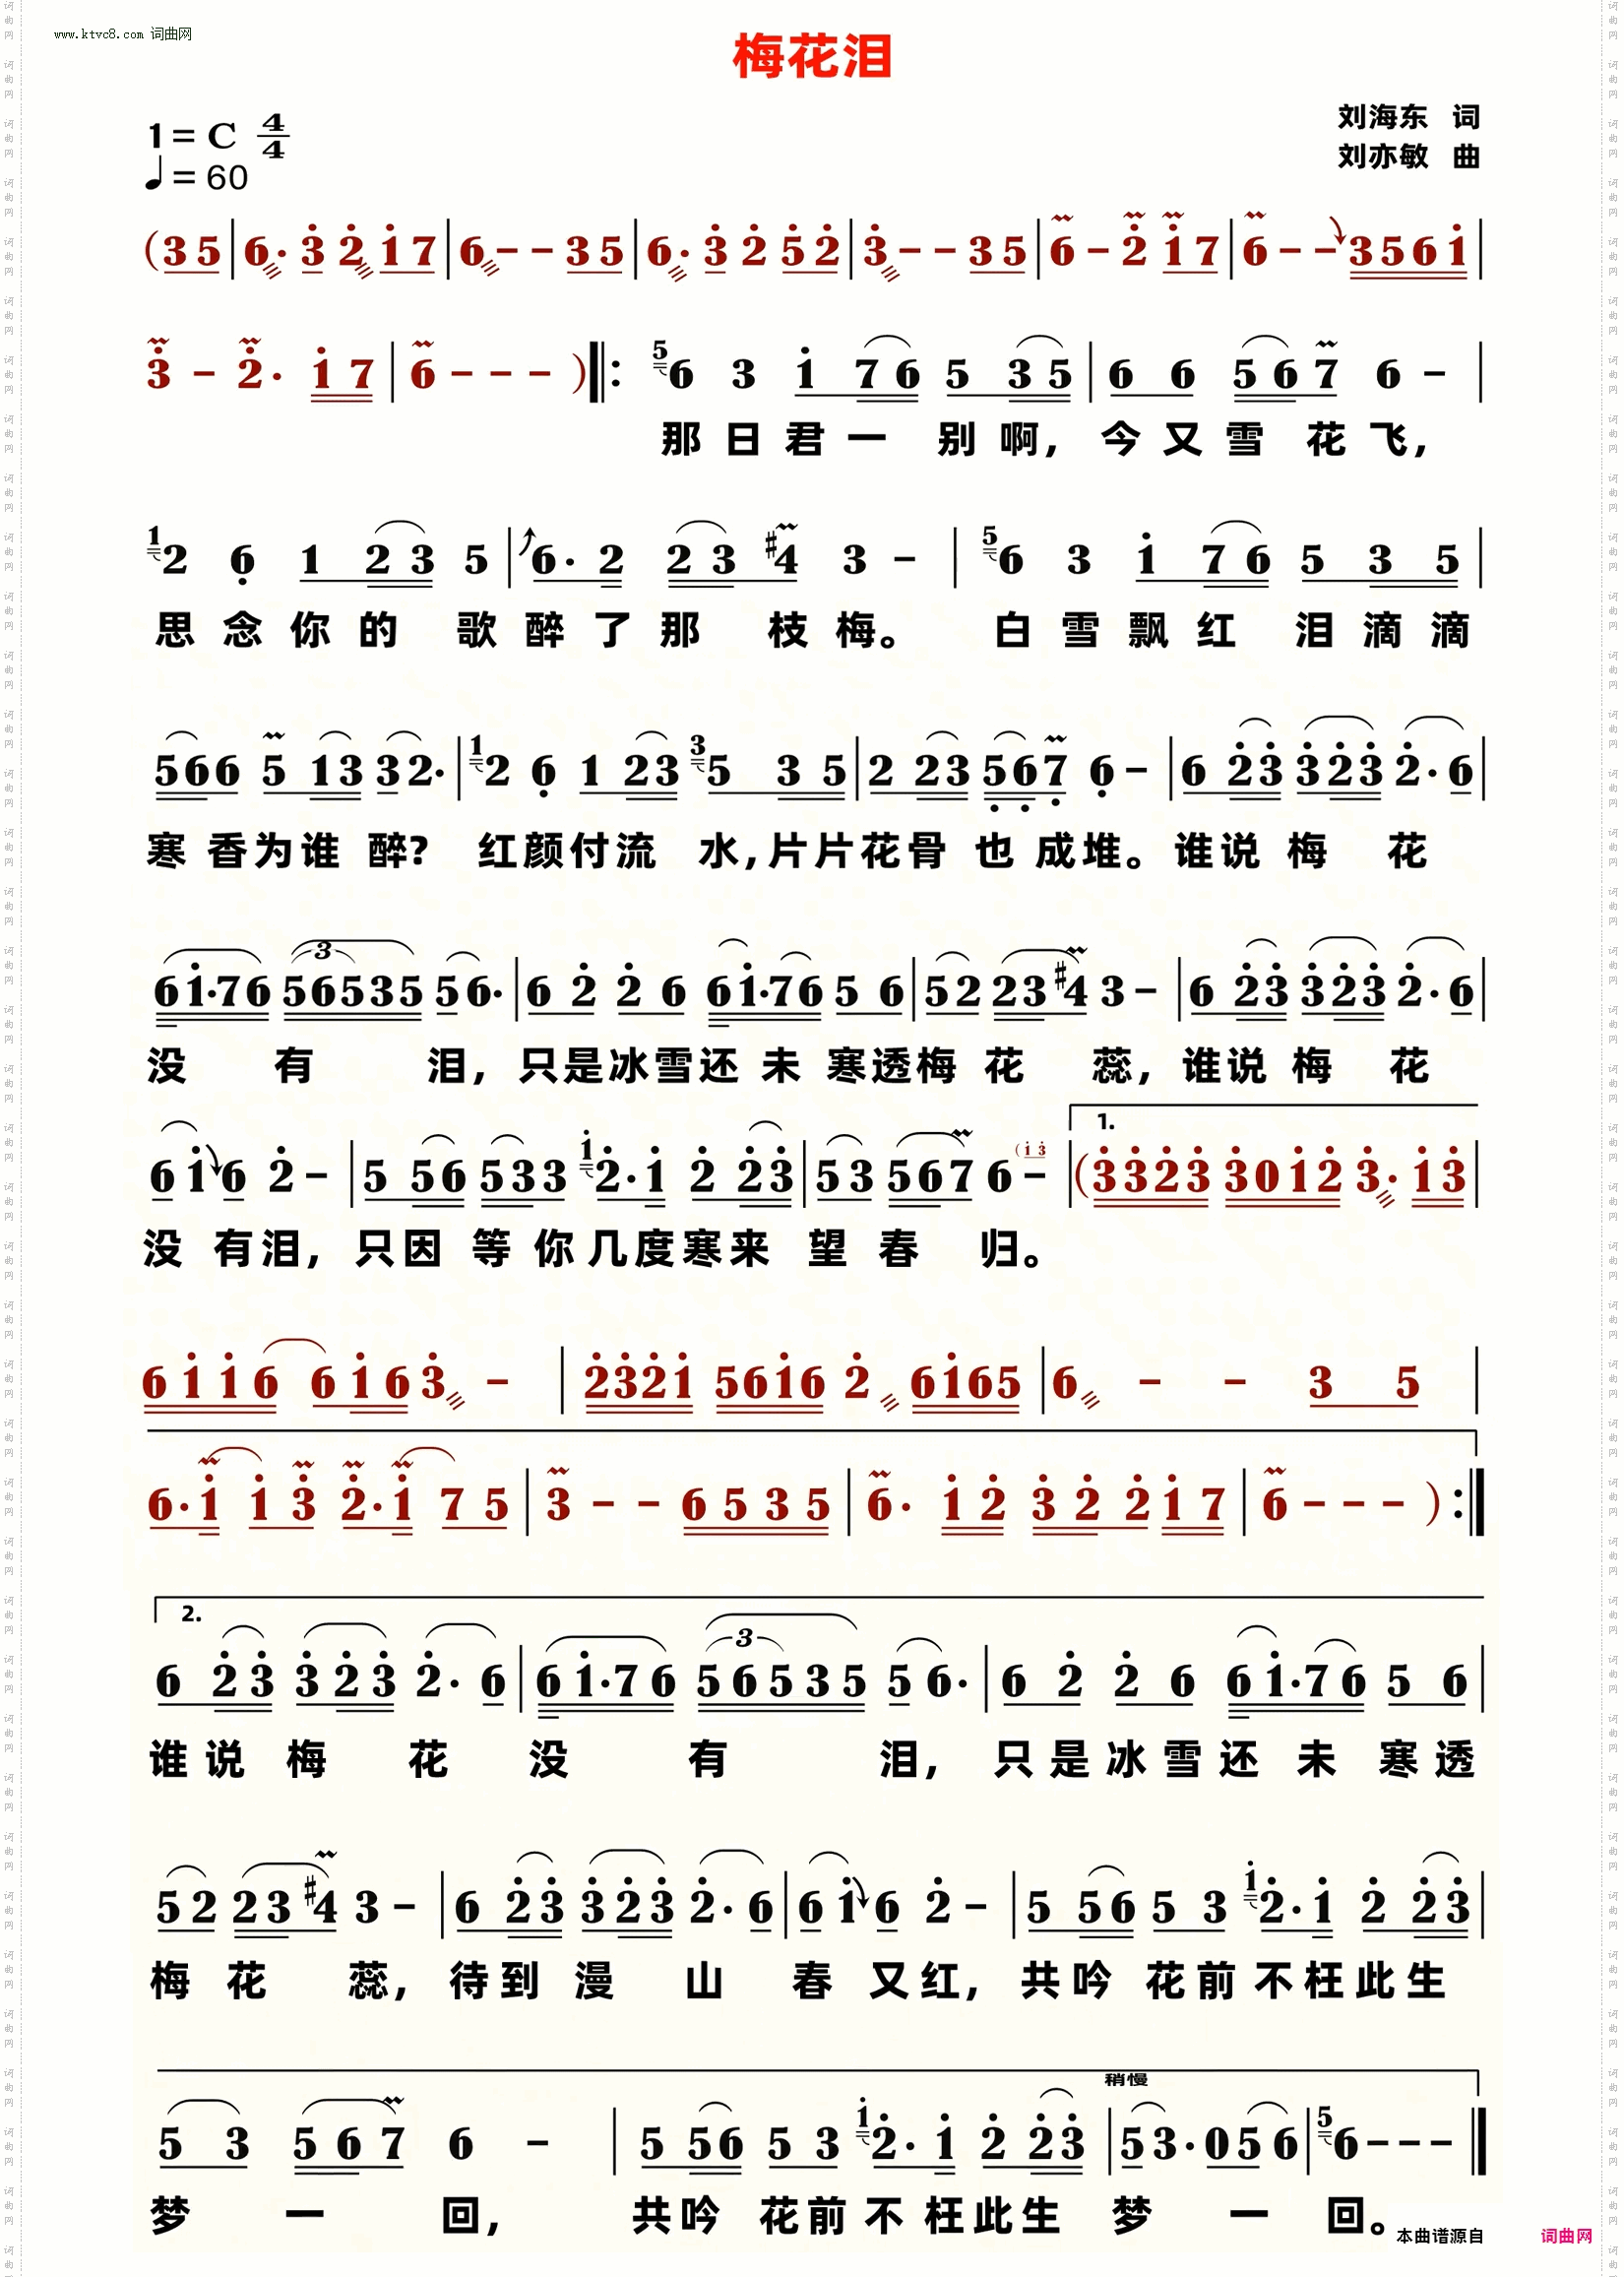 www.ktvc8.com 词曲网
梅花泪
刘海东 词
1=C 4/4
刘亦敏 曲
♩=60
(3 5 | 6· 3̇ 2̇ 1̇ 7 | 6 - - 3 5 | 6· 3̇ 2̇ 5̇ 2̇ | 3̇ - - 3 5 | 6 - 2̇ 1̇ 7 | 6 - - 3 5 6 1̇ |
3̇ - 2̇· 1̇ 7 | 6 - - - ) ‖: 5 6 3 1̇ 7 6 5 3 5 | 6 6 5 6 7 6 - |
那日君一 别啊, 今又雪 花飞,
1 2 6̣ 1 2 3 5 | 6· 2 2 3 #4 3 - | 5 6 3 1̇ 7 6 5 3 5 |
思念你的 歌醉了那 枝梅。 白雪飘红 泪滴滴
5 6 6 5 1 3 3 2· | 1 2 6̣ 1 2 3 3 5 3 5 | 2 2 3 5̣ 6̣ 7̣ 6̣ - | 6 2̇ 3̇ 3̇ 2̇ 3̇ 2̇· 6 |
寒香为谁 醉? 红颜付流 水,片片花骨 也成堆。谁说梅 花
6 1̇·7 6 5 6 5 3 5 3 5 6· | 6 2̇ 2̇ 6 6 1̇·7 6 5 6 | 5 2 2 3 #4 3 - | 6 2̇ 3̇ 3̇ 2̇ 3̇ 2̇· 6 |
没 有 泪, 只是冰雪还 未 寒透梅 花 蕊, 谁说梅 花
1.
6 1̇ 6 2̇ - | 5 5 6 5 3 3 1̇ 2̇· 1̇ 2̇ 2̇ 3̇ | 5 3 5 6 7 6 - (1̇ 3̇ | (3̇ 3̇ 2̇ 3̇ 3̇ 0 1̇ 2̇ 3̇· 1̇ 3̇ |
没 有泪, 只因 等 你几度寒来 望 春 归。
6 1̇ 1̇ 6 6 1̇ 6 3̇ - | 2̇ 3̇ 2̇ 1̇ 5 6 1̇ 6 2̇ 6 1̇ 6 5 | 6 - - 3 5 |
6· 1̇ 1̇ 3̇ 2̇· 1̇ 7 5 | 3̇ - - 6 5 3 5 | 6· 1̇ 2̇ 3̇ 2̇ 2̇ 1̇ 7 | 6 - - - ) :‖
2.
6 2̇ 3̇ 3̇ 2̇ 3̇ 2̇· 6 | 6 1̇·7 6 5 6 5 3 5 3 5 6· | 6 2̇ 2̇ 6 6 1̇·7 6 5 6 |
谁说 梅 花 没 有 泪, 只是冰雪还 未 寒透
5 2 2 3 #4 3 - | 6 2̇ 3̇ 3̇ 2̇ 3̇ 2̇· 6 | 6 1̇ 6 2̇ - | 5 5 6 5 3 1̇ 2̇· 1̇ 2̇ 2̇ 3̇ |
梅 花 蕊, 待到 漫 山 春 又红, 共吟 花前 不枉此生
稍慢
5 3 5 6 7 6 - | 5 5 6 5 3 1̇ 2̇· 1̇ 2̇ 2̇ 3̇ | 5 3· 0 5 6 | 5 6 - - - ‖
梦 一 回, 共吟 花前 不 枉此生 梦 一 回。
本曲谱源自 词曲网